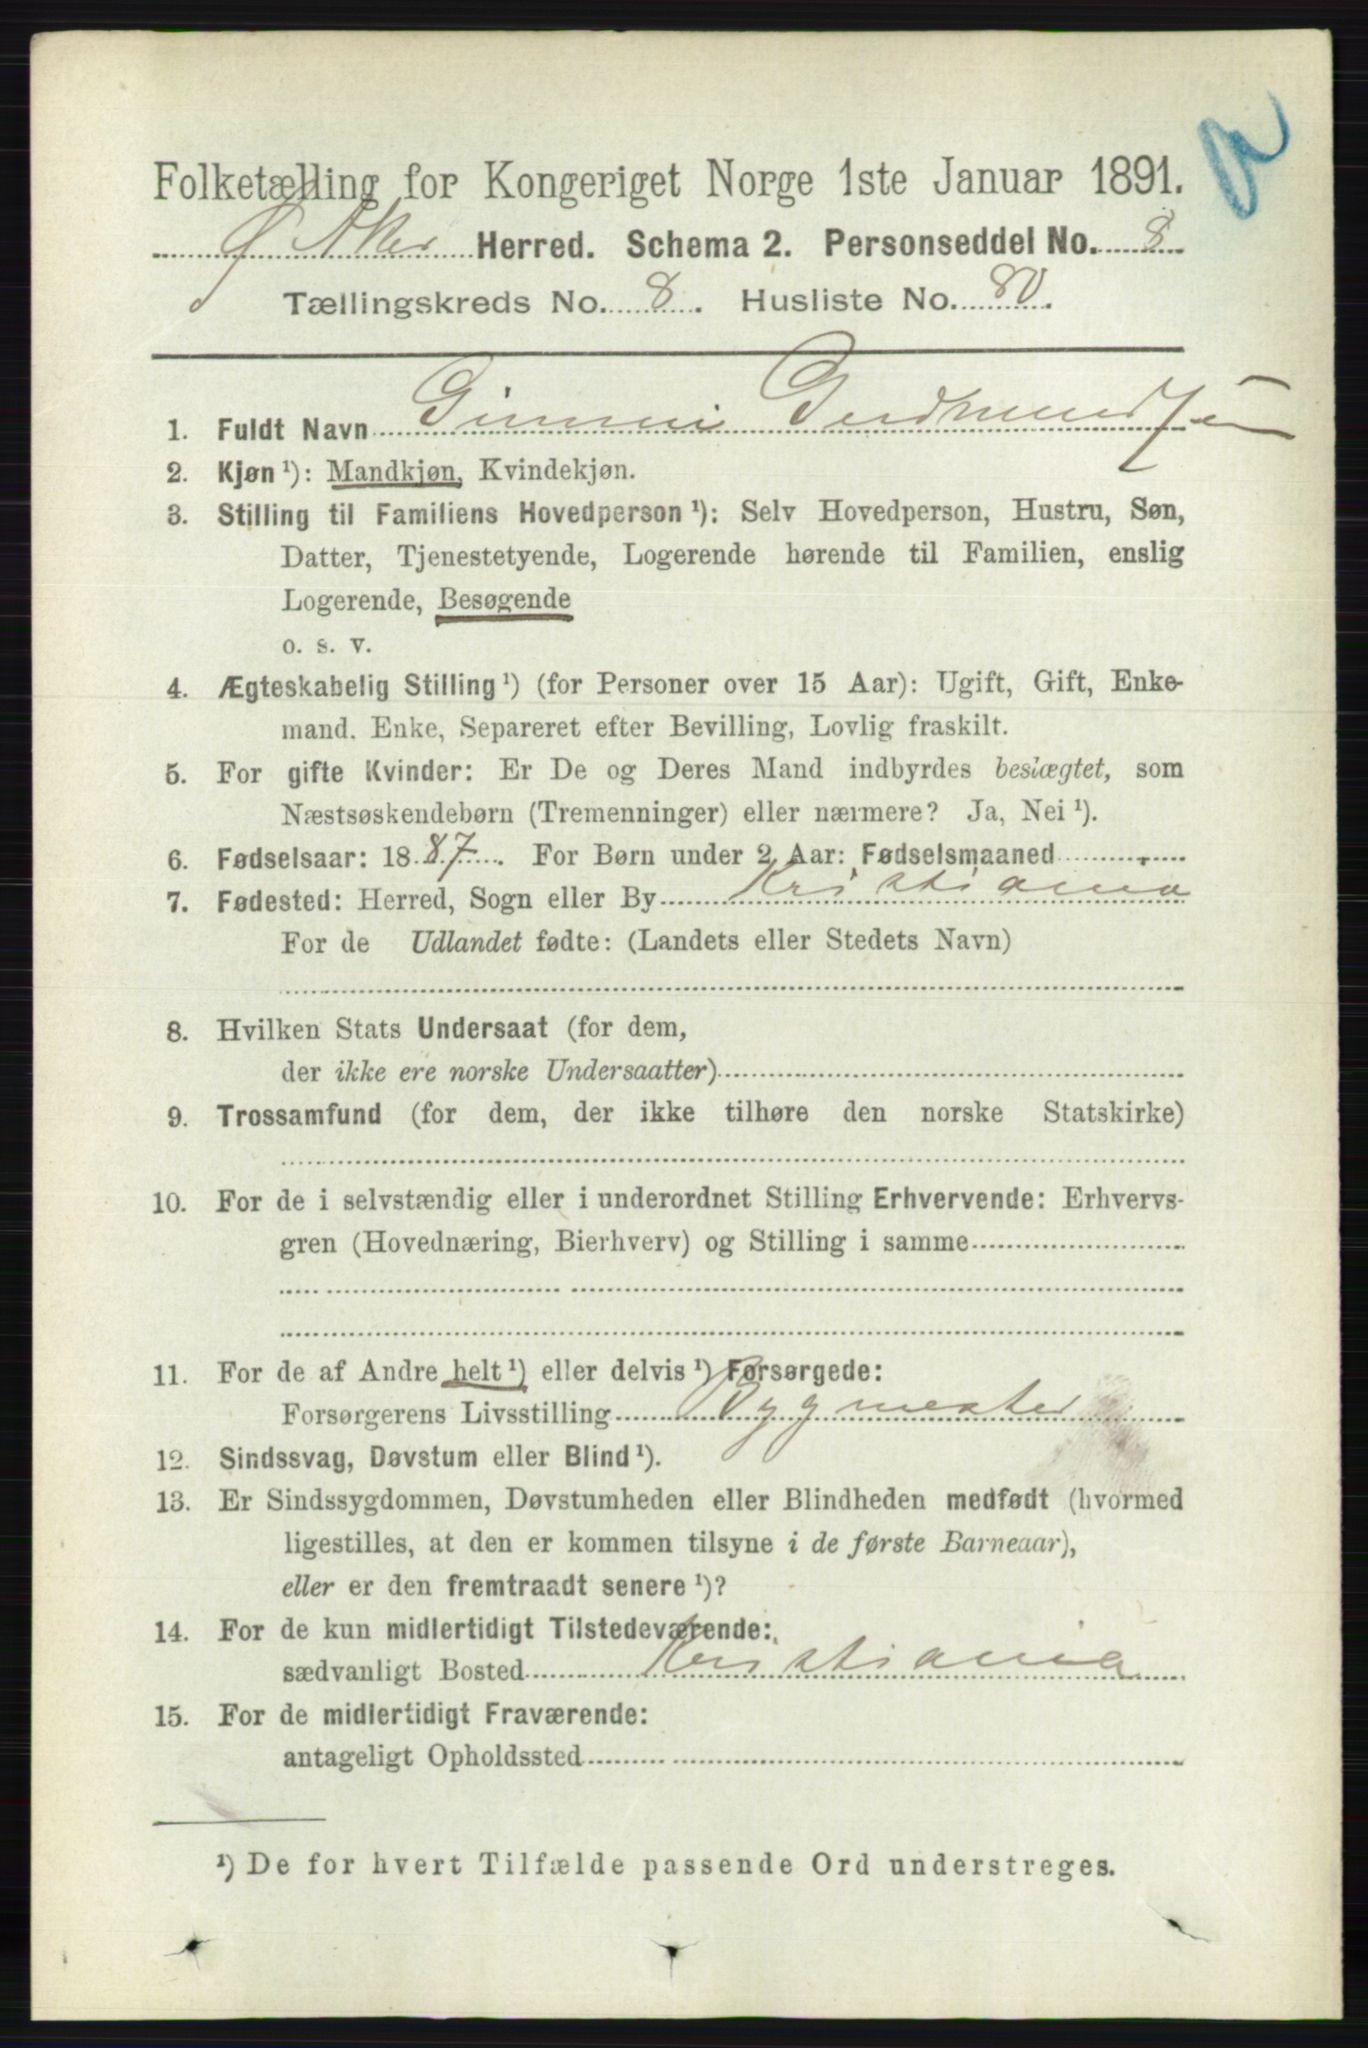 Folketælling for Kongeriget Norge 1ste Januar 1891.
Ø Aker Herred. Schema 2. Personseddel No. 8
Tællingskreds No. 8. Husliste No. 80.
1. Fuldt Navn Gudmundsen
2. Kjøn ¹): Mandkjøn, Kvindekjøn.
3. Stilling til Familiens Hovedperson ¹): Selv Hovedperson, Hustru, Søn,
Datter, Tjenestetyende, Logerende hørende til Familien, enslig
Logerende, Besøgende
o. s. v.
4. Ægteskabelig Stilling ¹) (for Personer over 15 Aar): Ugift, Gift, Enke-
mand. Enke, Separeret efter Bevilling, Lovlig fraskilt.
5. For gifte Kvinder: Er De og Deres Mand indbyrdes beslægtet, som
Næstsøskendebørn (Tremenninger) eller nærmere? Ja, Nei ¹).
6. Fødselsaar: 1887. For Børn under 2 Aar: Fødselsmaaned
7. Fødested: Herred, Sogn eller By Kristiania
For de Udlandet fødte: (Landets eller Stedets Navn)
8. Hvilken Stats Undersaat (for dem,
der ikke ere norske Undersaatter)
9. Trossamfund (for dem, der ikke tilhøre den norske Statskirke)
10. For de i selvstændig eller i underordnet Stilling Erhvervende: Erhvervs-
gren (Hovednæring, Bierhverv) og Stilling i samme
11. For de af Andre helt ¹) eller delvis ¹) Forsørgede:
Forsørgerens Livsstilling Bygmester
12. Sindssvag, Døvstum eller Blind ¹).
13. Er Sindssygdommen, Døvstumheden eller Blindheden medfødt (hvormed
ligestilles, at den er kommen tilsyne i de første Barneaar),
eller er den fremtraadt senere ¹)?
14. For de kun midlertidigt Tilstedeværende:
sædvanligt Bosted Kristiania
15. For de midlertidigt Fraværende:
antageligt Opholdssted
¹) De for hvert Tilfælde passende Ord understreges.